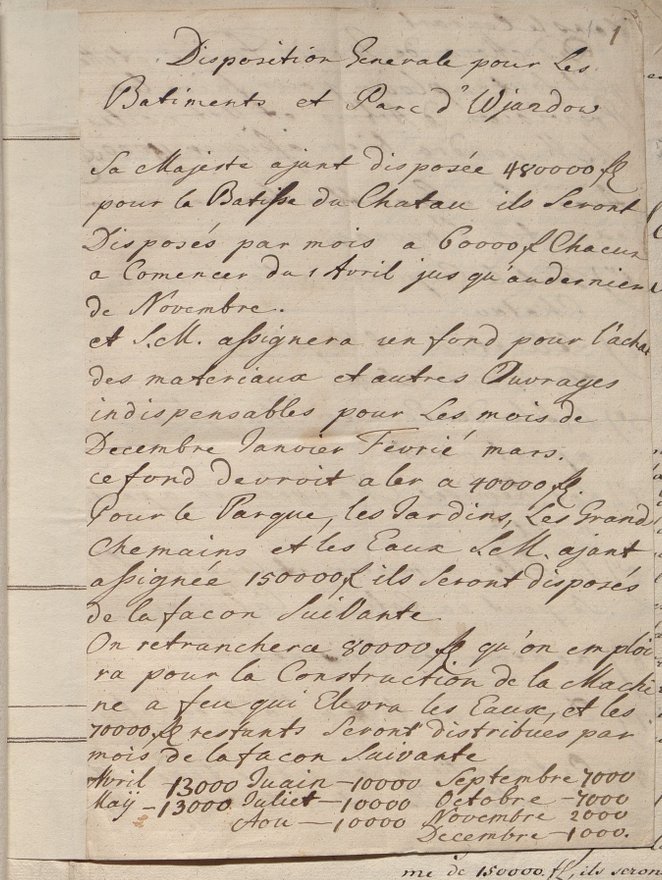 1
Disposition Generale pour Les
Batiments et Parc d'Ujazdow
Sa Majeste ajant disposée 480000 fl
pour la Batisse du Chatau ils Seront
Disposés par mois a 60000 fl Chacun
a Comencer du 1 Avril jusqu'au dernier
de Novembre.
et S.M. assignera un fond pour l'achat
des materiaux et autres Ouvrages
indispensables pour Les mois de
Decembre Janvier Fevrié mars.
ce fond devroit aler a 40000 fl.
Pour le Parque, les Jardins, Les Grand
Chemains et les Eaux S.M. ajant
assignée 150000 fl ils Seront disposés
de la facon Suivante
On retranchera 80000 fl qu'on emploi
ra pour la Construction de la Machi
ne a feu qui Elevra les Eaux, et les
70000 fl restants Seront distribues par
mois de la facon Suivante
Avril 13000 Juain - 10000 Septembre 7000
Maÿ - 13000 Juliet - 10000 Octobre - 7000
Aou - 10000 Novembre 2000
Decembre - 1000.
me de 150000. fl, ils seron